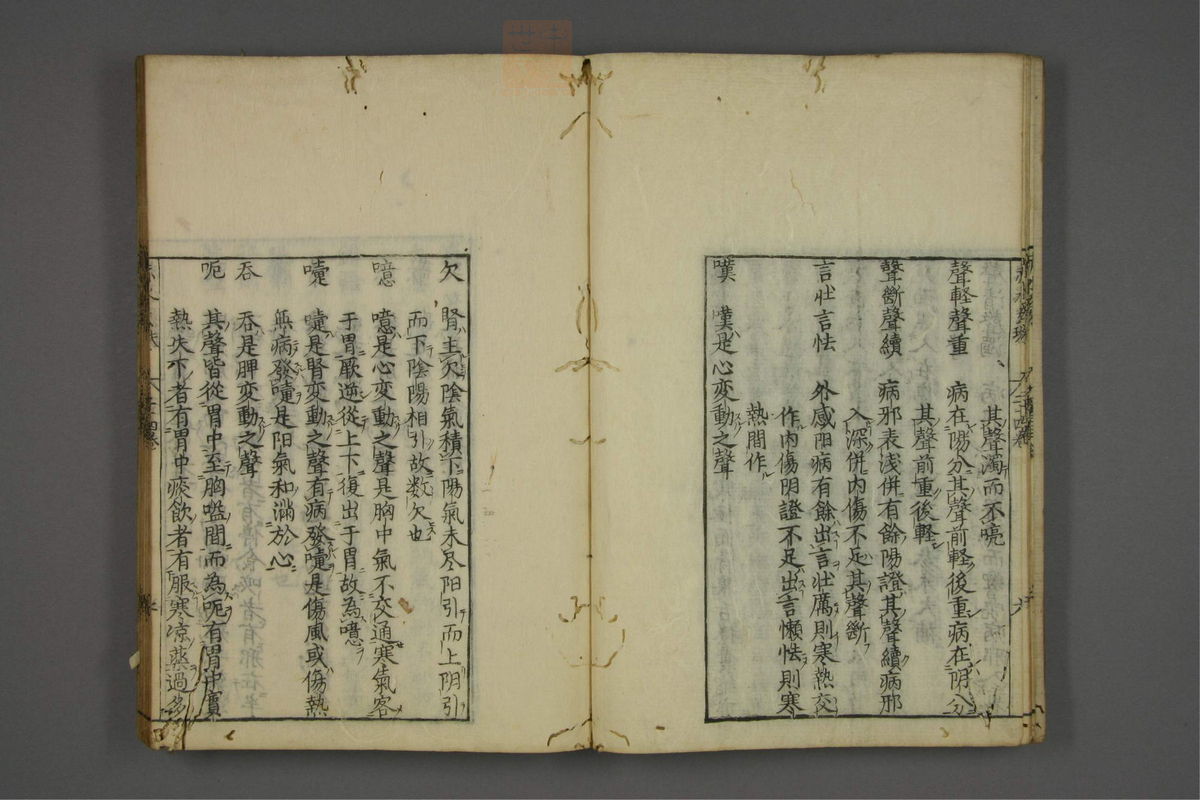 其聲濁而不喨
聲軽聲重　病在陽分其聲前軽後重病在阴分
其聲前重後軽
聲斷聲續　病邪表浅併有餘陽證其聲續病邪
入深併内傷不足其聲斷
言壮言怯　外感阳病有餘出言壮厲則寒熱交
作内傷阴證不足出言懶怯則寒
熱間作
嘆　嘆是心变動之聲
欠　腎主欠陰氣積下陽氣未尽阳引而上阴引
而下陰陽相引故数欠也
噫　噫是心変動之聲是胸中氣不交通寒氣客
于胃厥逆從上下復出于胃故為噫
嚏　嚏是腎变動之聲有病發嚏是傷風或傷熱
無病發嚏是阳氣和滿於心
吞　吞是脾变動之聲
呃　其聲皆從胃中至胸嗌間而為呃有胃中實
熱失下者有胃中痰飲者有服寒凉藥過多